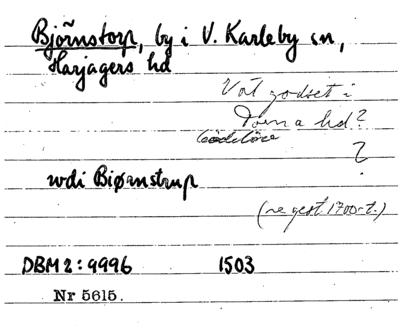 Bjönstorp, by i V. Karleby sn,
Harjagers hd
Vät godset i
Torna hd?
?
udi Biørnstrup
(regest 1700-t.)
DBM 2:9996 1503
Nr 5615.